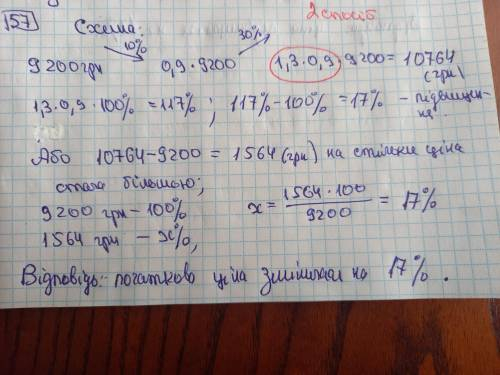 157 Схема: 2 спосіб
10% 30%
9200грн 0,9·9200 1,3·0,9·9200=10764 (грн)
1,3·0,9·100%=117%; 117%-100%=17% - підвищен-
ня.
Або 10764-9200=1564(грн) на стільки ціна
стала більшою;
9200 грн-100%
1564 грн - x%,
x=1564·100/9200=17%
Відповідь: початкова ціна змінилась на 17%.